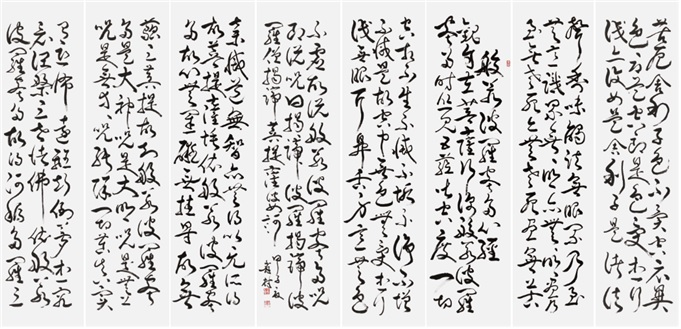 苦厄舍利子色不異空空不異
色色即是空空即是色受想行
識亦復如是舍利子是諸法
聲香味觸法無眼界乃至
無意識界無無明亦無無明盡
乃至無老死亦無老死盡無苦
般若波羅蜜多心經
觀自在菩薩行深般若波羅
蜜多時照見五蘊皆空度一切
空相不生不滅不垢不淨不增
不減是故空中無色無受想行
識無眼耳鼻舌身意無色
不虛故說般若波羅蜜多咒
即說咒曰揭諦揭諦波羅揭諦波
羅僧揭諦菩提薩婆訶
集滅道無智亦無得以無所得
故菩提薩埵依般若波羅蜜
多故心無罣礙無罣礙故無
藐三菩提故知般若波羅蜜
多是大神咒是大明咒是無上
咒是無等等咒能除一切苦真實
有恐怖遠離顛倒夢想究
竟涅槃三世諸佛依般若
波羅蜜多故得阿耨多羅三